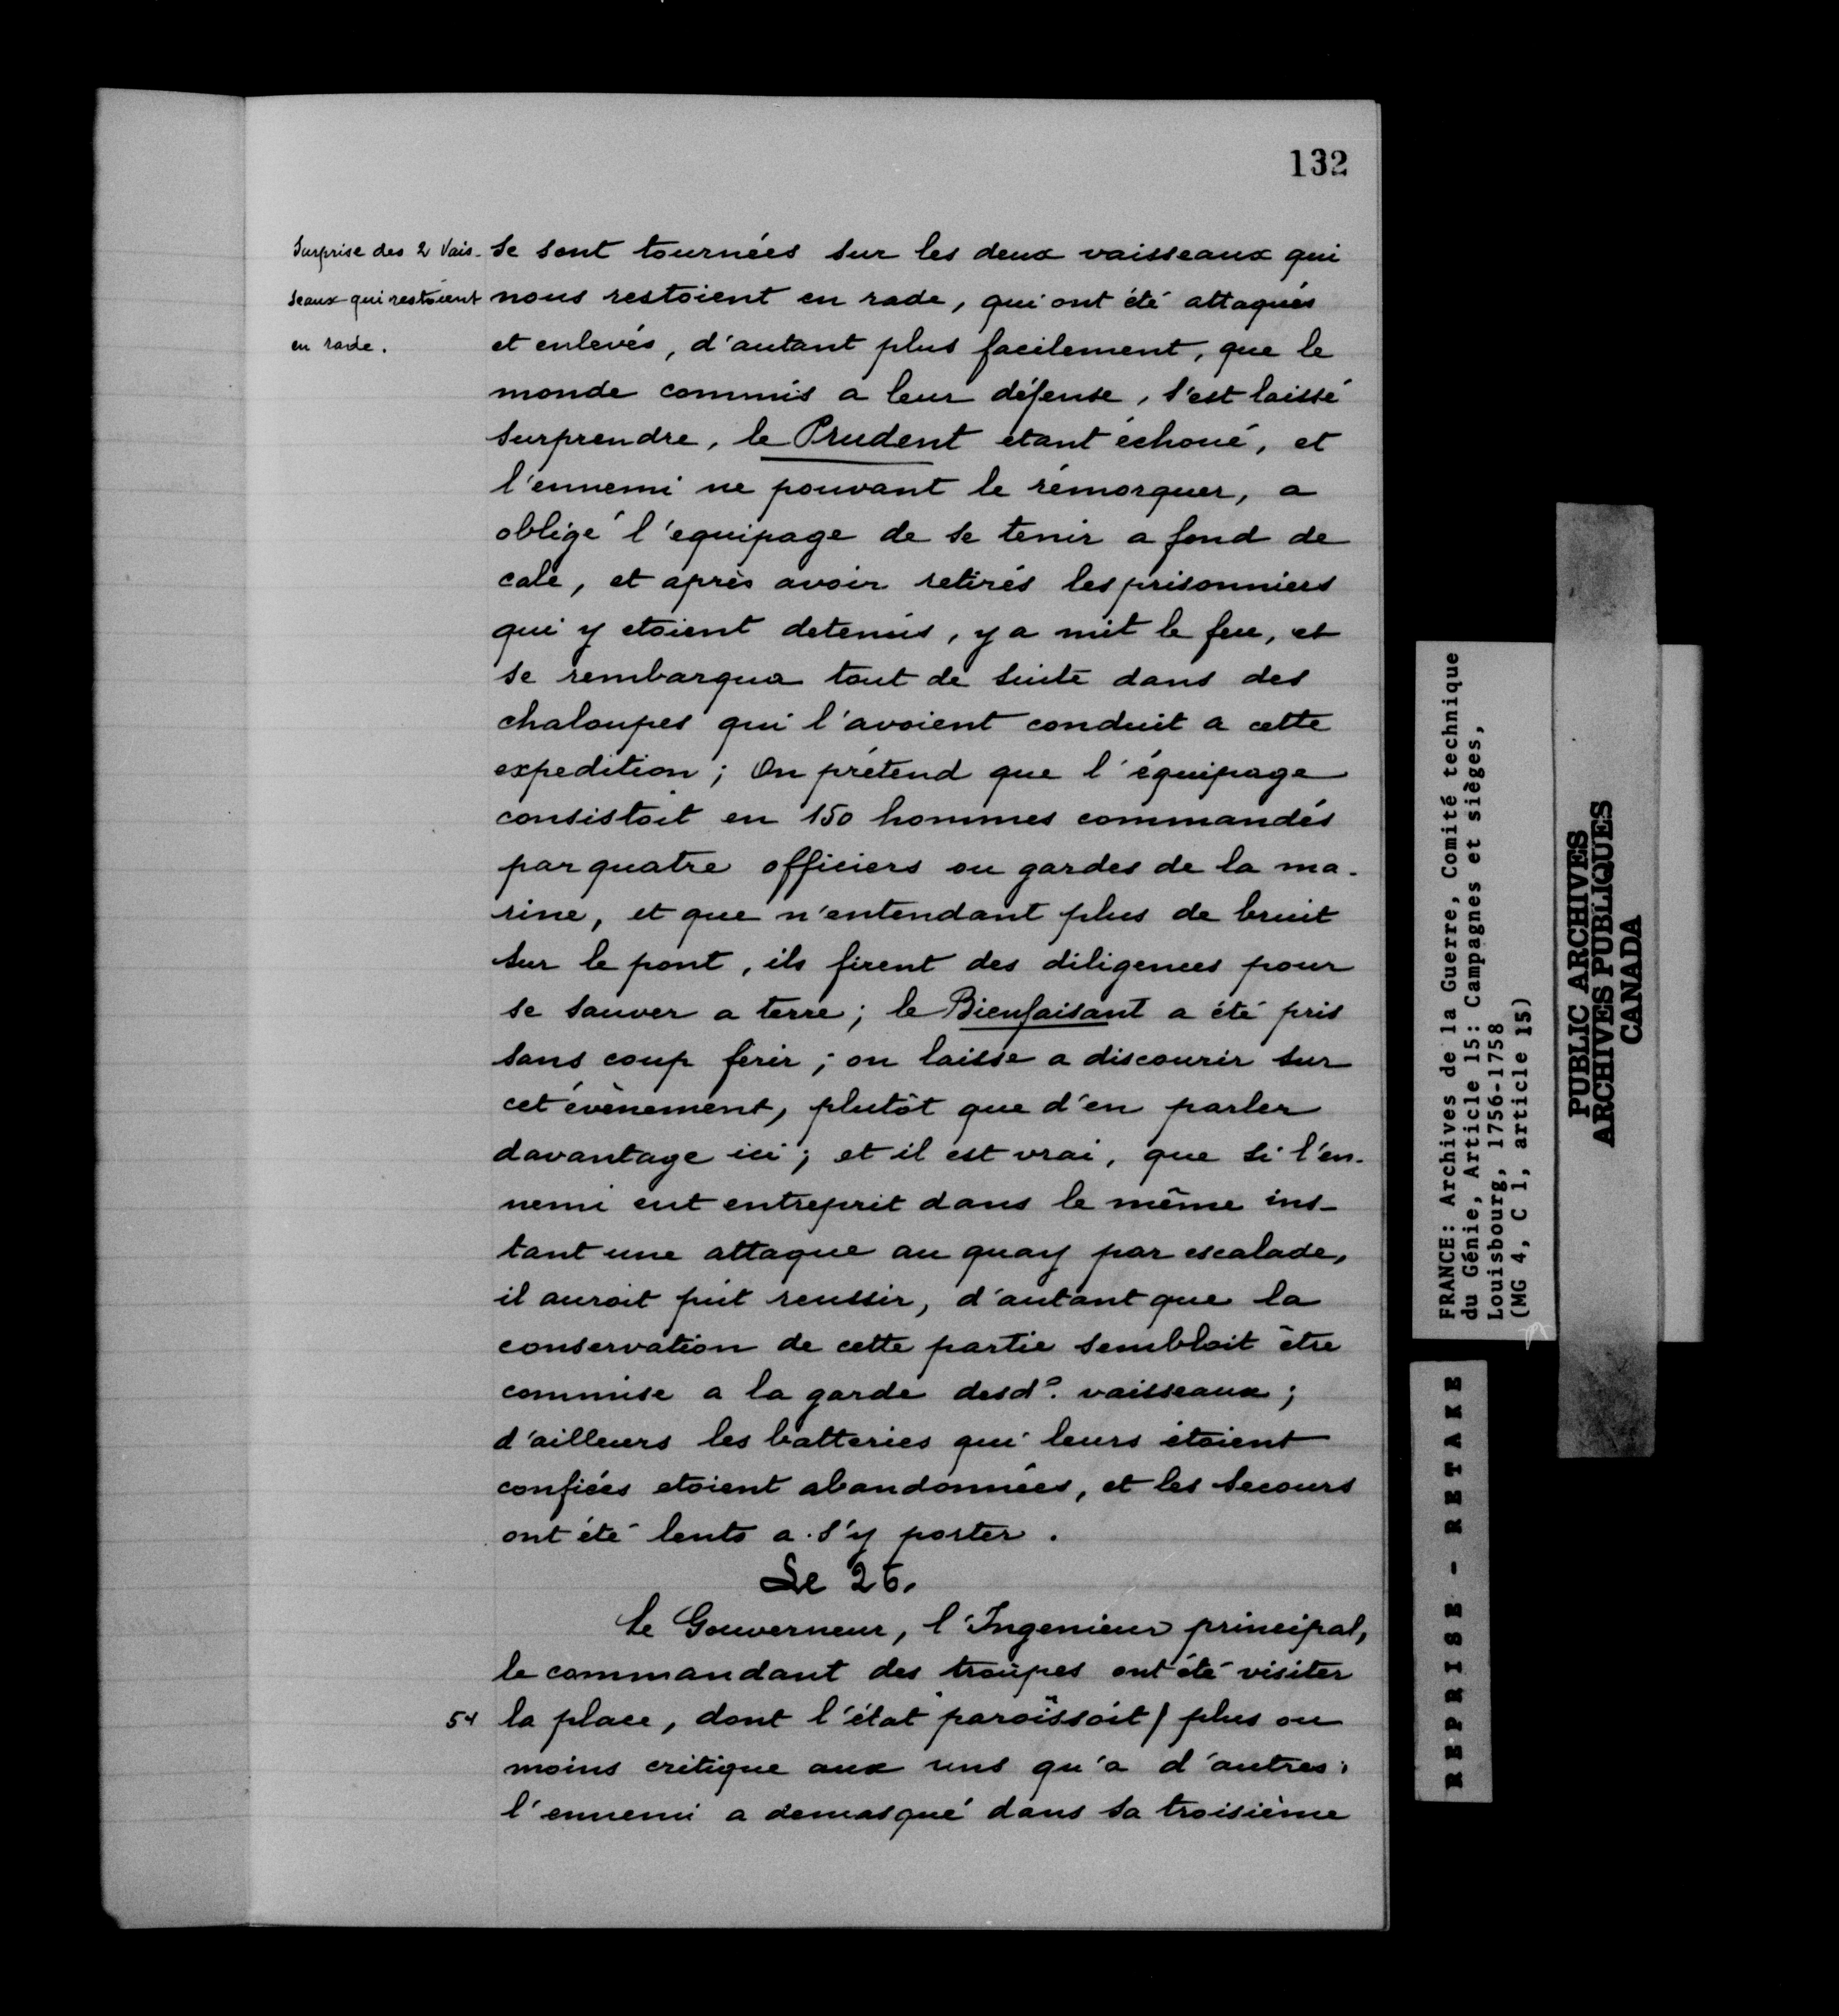 132
Surprise des 2 Vais-
seaux qui restoient
en rade.
se sont tournées sur les deux vaisseaux qui
nous restoient en rade, qui ont été attaqués
et enlevés, d'autant plus facilement, que le
monde commis a leur défense, s'est laissé
surprendre, le Prudent etant échoué, et
l'ennemi ne pouvant le rémorquer, a
obligé l'equipage de se tenir a fond de
cale, et après avoir retirés les prisonniers
qui y etoient detenus, y a mit le feu, et
se rembarqua tout de suite dans des
chaloupes qui l'avoient conduit a cette
expedition; On prétend que l'équipage
consistoit en 150 hommes commandés
par quatre officiers ou gardes de la ma-
rine, et que n'entendant plus de bruit
sur le pont, ils firent des diligences pour
se sauver a terre; le Bienfaisant a été pris
sans coup ferir; on laisse a discourir sur
cet évènement, plutôt que d'en parler
davantage ici; et il est vrai, que si l'en-
nemi eut entreprit dans le même ins-
tant une attaque au quay par escalade,
il auroit pût reussir, d'autant que la
conservation de cette partie sembloit être
commise a la garde desd.ˢ vaisseaux;
d'ailleurs les batteries qui leurs étoient
confiées etoient abandonnées, et les secours
ont été lents a s'y porter.
Le 26.
Le Gouverneur, l'Ingenieur principal,
le commandant des troupes ont été visiter
54 la place, dont l'état paroissoit / plus ou
moins critique aux uns qu'a d'autres;
l'ennemi a demasqué dans sa troisième
FRANCE: Archives de la Guerre, Comité technique
du Génie, Article 15: Campagnes et sièges,
Louisbourg, 1756-1758
(MG 4, C 1, article 15)
PUBLIC ARCHIVES
ARCHIVES PUBLIQUES
CANADA
REPRISE - RETAKE